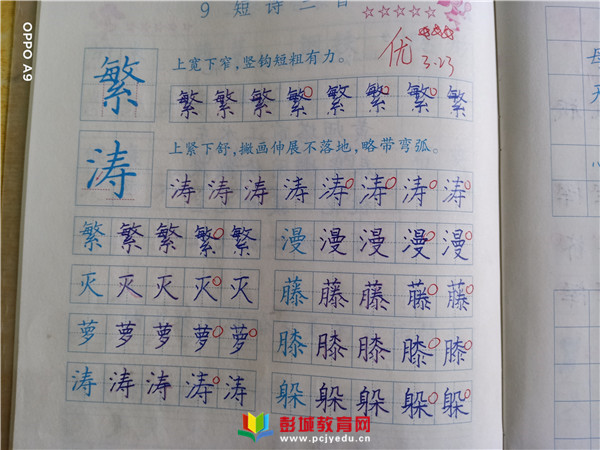 OPPO A9
9 短诗三首
☆☆☆☆☆
优 3.23
繁
上宽下窄,竖钩短粗有力。
繁 繁 繁 繁 繁 繁 繁 繁
涛
上紧下舒,撇画伸展不落地,略带弯弧。
涛 涛 涛 涛 涛 涛 涛 涛
繁 繁 繁 繁 繁 漫 漫 漫 漫 漫
灭 灭 灭 灭 灭 藤 藤 藤 藤 藤
萝 萝 萝 萝 萝 膝 膝 膝 膝 膝
涛 涛 涛 涛 涛 躲 躲 躲 躲 躲
彭城教育网
www.pcjyedu.cn